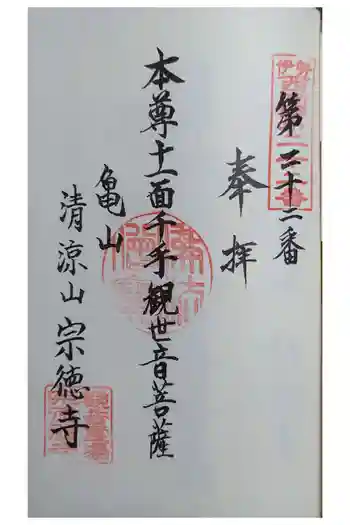 第二十二番
奉拝
本尊十一面千手観世音菩薩
亀山
清涼山宗徳寺